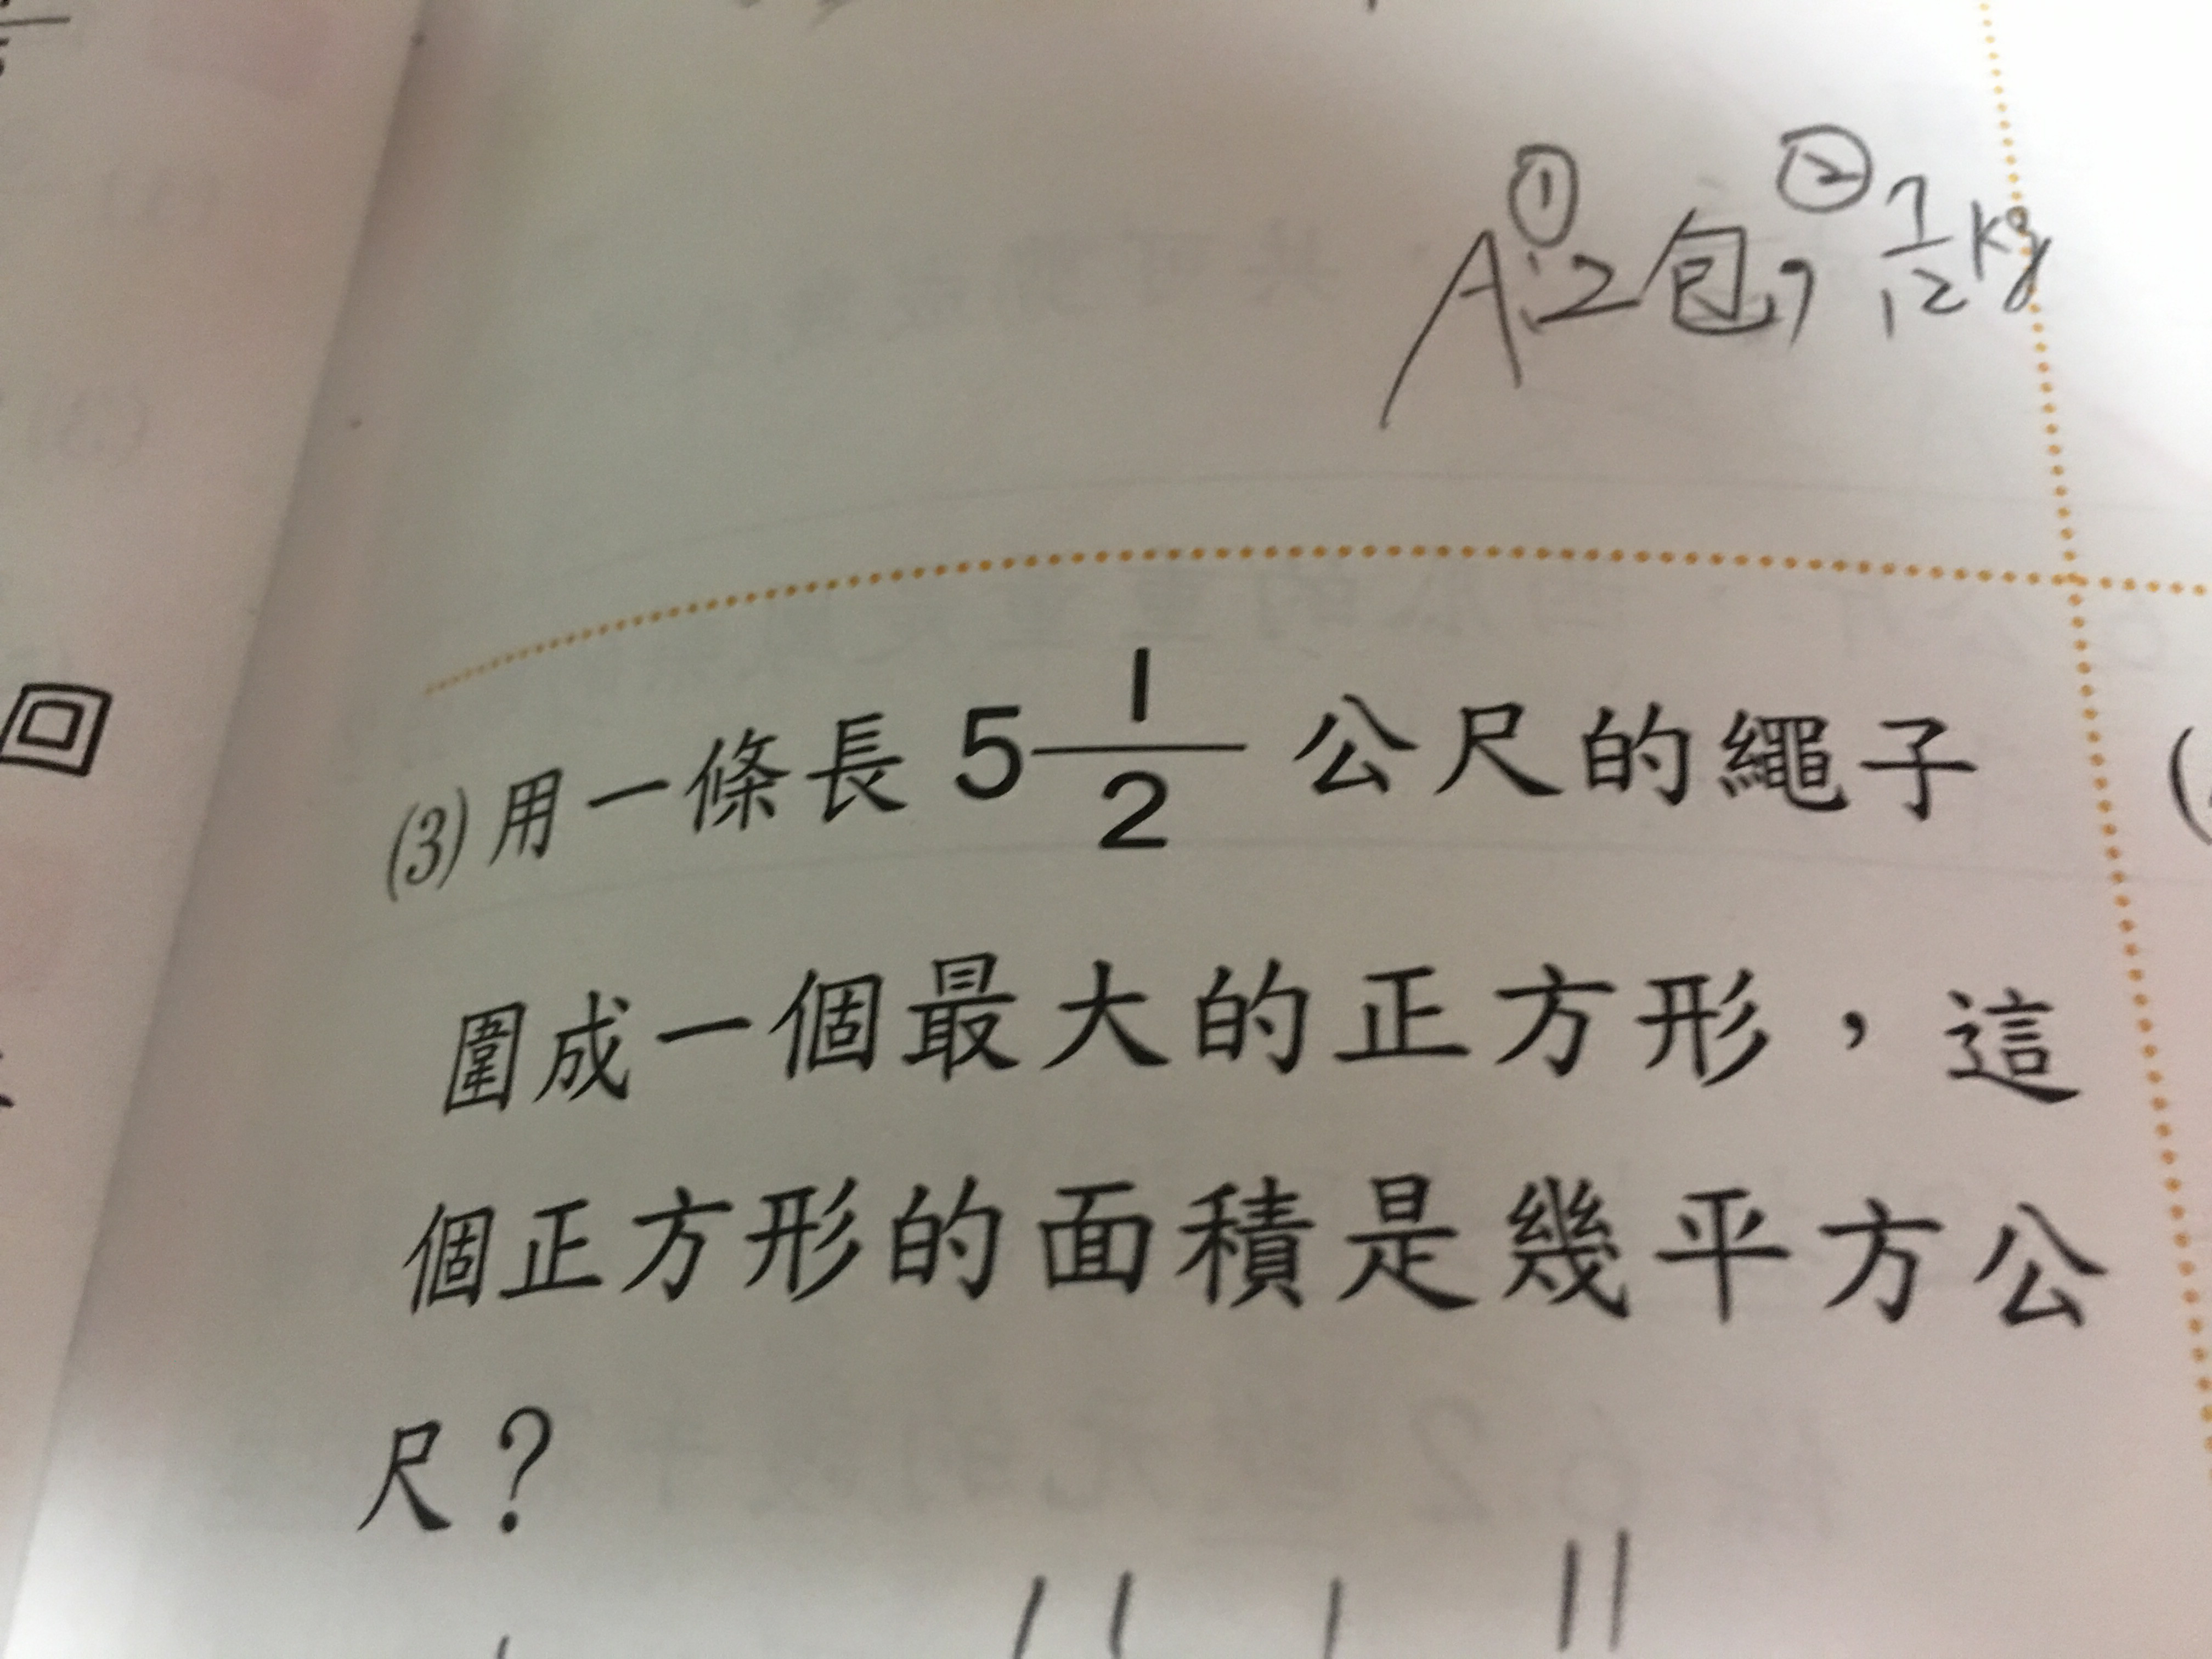 A:①2包, ②7/12kg
(3)用一條長5 1/2 公尺的繩子
圍成一個最大的正方形，這
個正方形的面積是幾平方公
尺？